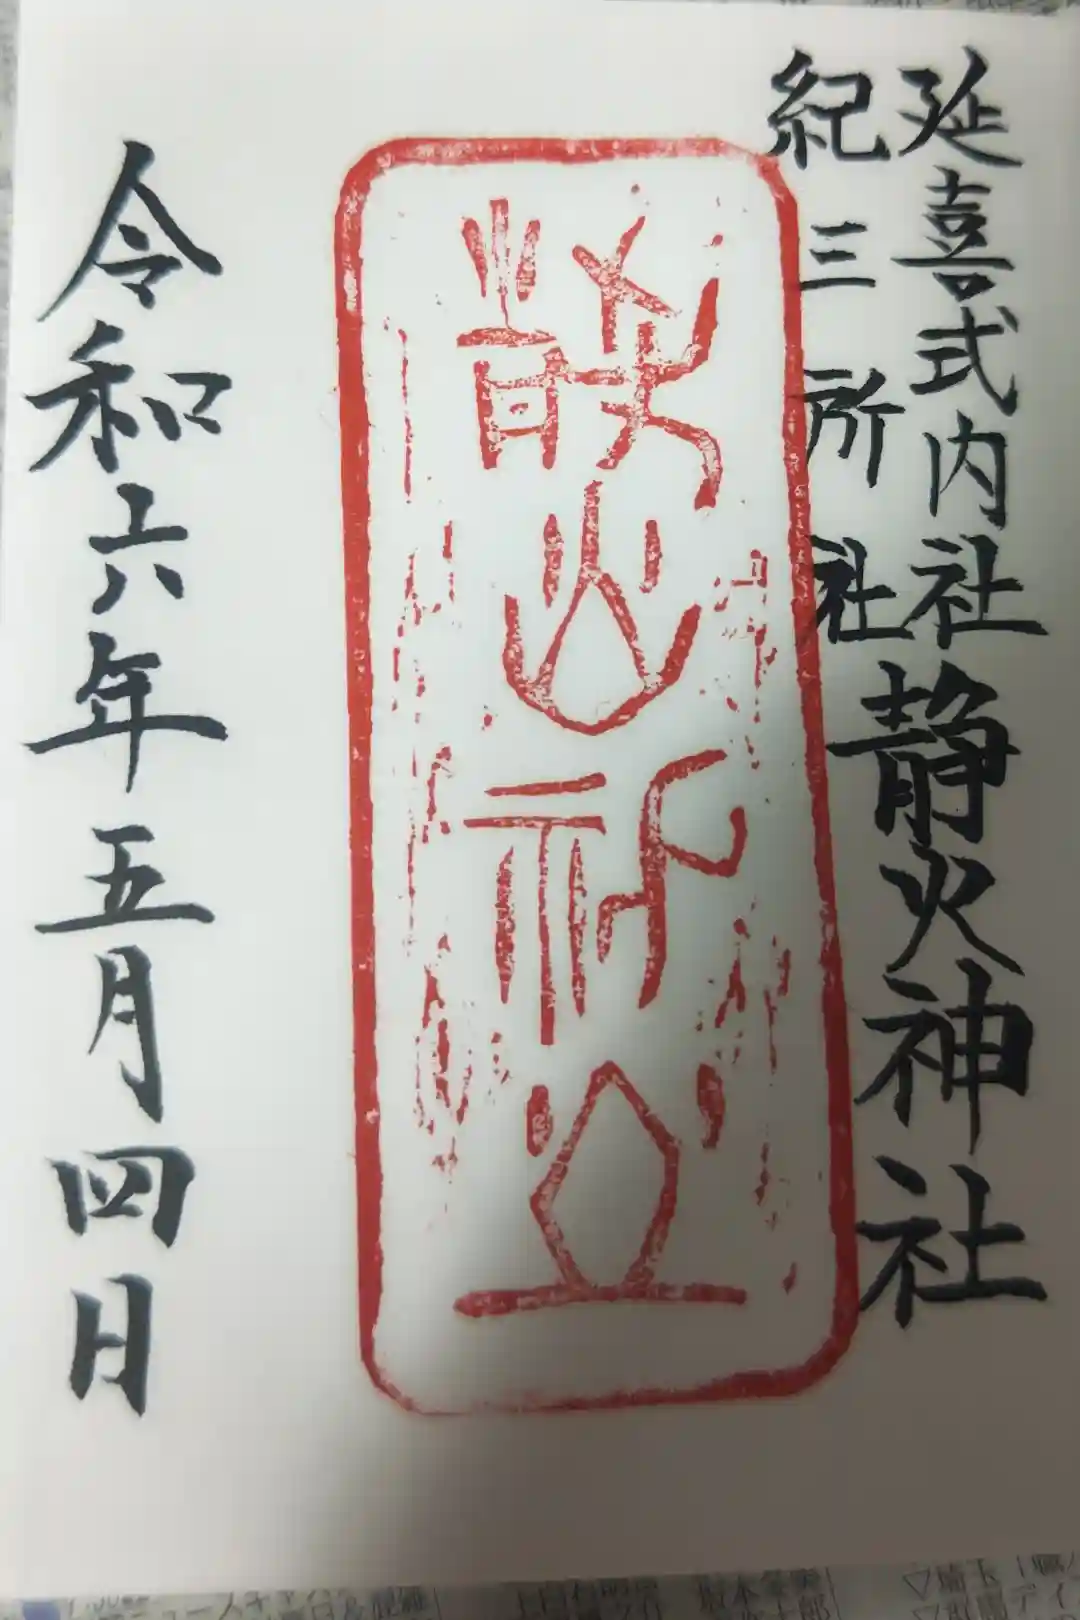 延喜式内社静火神社
紀三所社
静火神社
令和六年五月四日